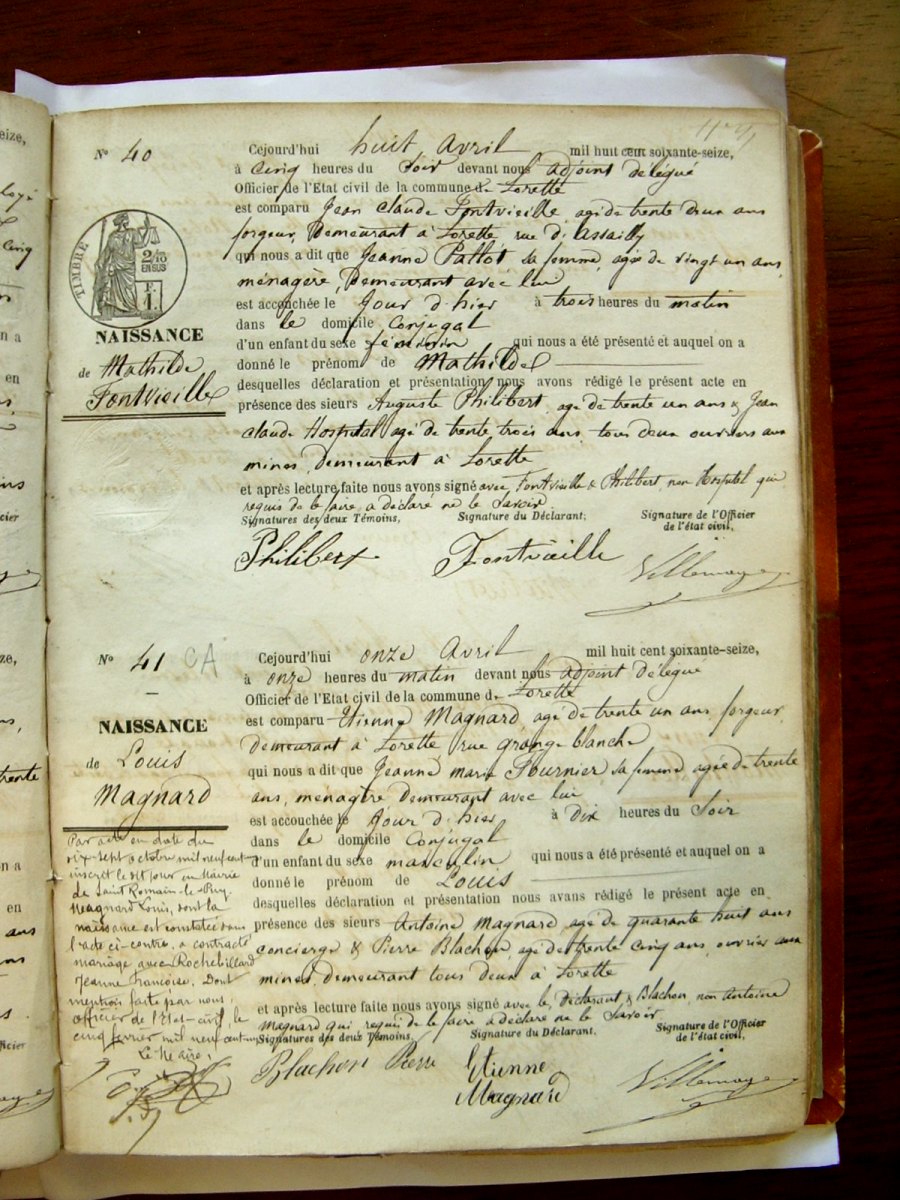 N° 40
Cejourd'hui huit avril mil huit cent soixante-seize,
à cinq heures du soir devant nous adjoint délégué
Officier de l'Etat civil de la commune de Lorette
est comparu Jean Claude Fontvieille, agé de trente deux ans
forgeur, demeurant à Lorette rue d'assailly
qui nous a dit que Jeanne Pallot sa femme, agée de vingt un ans
ménagère, demeurant avec lui
est accouchée le jour d'hier à trois heures du matin
dans le domicile conjugal
d'un enfant du sexe féminin qui nous a été présenté et auquel on a
donné le prénom de Mathilde
desquelles déclaration et présentation nous avons rédigé le présent acte en
présence des sieurs Auguste Philibert, agé de trente un ans & Jean
Claude Hospital agé de trente trois ans, tous deux ouvriers aux
mines, demeurant à Lorette
et après lecture faite nous avons signé avec Fontvieille & Philibert, non Hospital qui
requis de le faire, a déclaré ne le savoir
Signatures des deux Témoins, Signature du Déclarant; Signature de l'Officier
de l'état civil,
Philibert Fontvieille Villemagne
TIMBRE
2/10
EN SUS
NAISSANCE
de Mathilde
Fontvieille
N° 41 CA
Cejourd'hui onze avril mil huit cent soixante-seize,
à onze heures du matin devant nous adjoint délégué
Officier de l'Etat civil de la commune de Lorette
est comparu Etienne Magnard, agé de trente un ans, forgeur,
demeurant à Lorette, rue grange blanche
qui nous a dit que Jeanne marie Fournier, sa femme, agée de trente
ans, ménagère demeurant avec lui
est accouchée le jour d'hier à dix heures du soir
dans le domicile conjugal
d'un enfant du sexe masculin qui nous a été présenté et auquel on a
donné le prénom de Louis
desquelles déclaration et présentation nous avons rédigé le présent acte en
présence des sieurs Antoine Magnard agé de quarante huit ans
concierge & Pierre Blachon, agé de trente cinq ans, ouvrier aux
mines, demeurant tous deux à Lorette
et après lecture faite nous avons signé avec le déclarant & Blachon, non Antoine
Magnard qui requis de le faire a déclaré ne le savoir
Signatures des deux Témoins, Signature du Déclarant. Signature de l'Officier
de l'état civil,
Blachon Pierre Etienne Villemagne
Magnard
NAISSANCE
de Louis
Magnard
Par acte en date du
dix-sept octobre mil neuf cent
inscrit le dit jour en Mairie
de Saint Romain-le-Puy,
Magnard Louis, dont la
naissance est constatée dans
l'acte ci-contre, a contracté
mariage avec Rochebillard
Jeanne Françoise. Dont
mention faite par nous,
officier de l'Etat-civil, le
cinq février mil neuf cent
Le Maire,